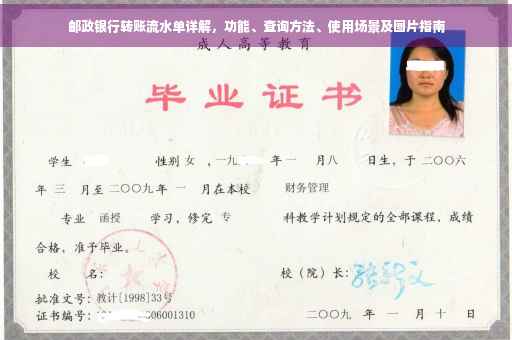 邮政银行转账流水单详解，功能、查询方法、使用场景及图片指南
成人高等教育
毕业证书
学生 性别 女 ，一九 年 一 月 八 日生，于 二〇〇六
年 三 月至 二〇〇九 年 一 月在本校 财务管理
专业 函授 学习，修完 专 科教学计划规定的全部课程，成绩
合格，准予毕业。
校 名： 校（院）长：
批准文号：教计[1998]33号
证书编号： 06001310 二〇〇九 年 一 月 十 日